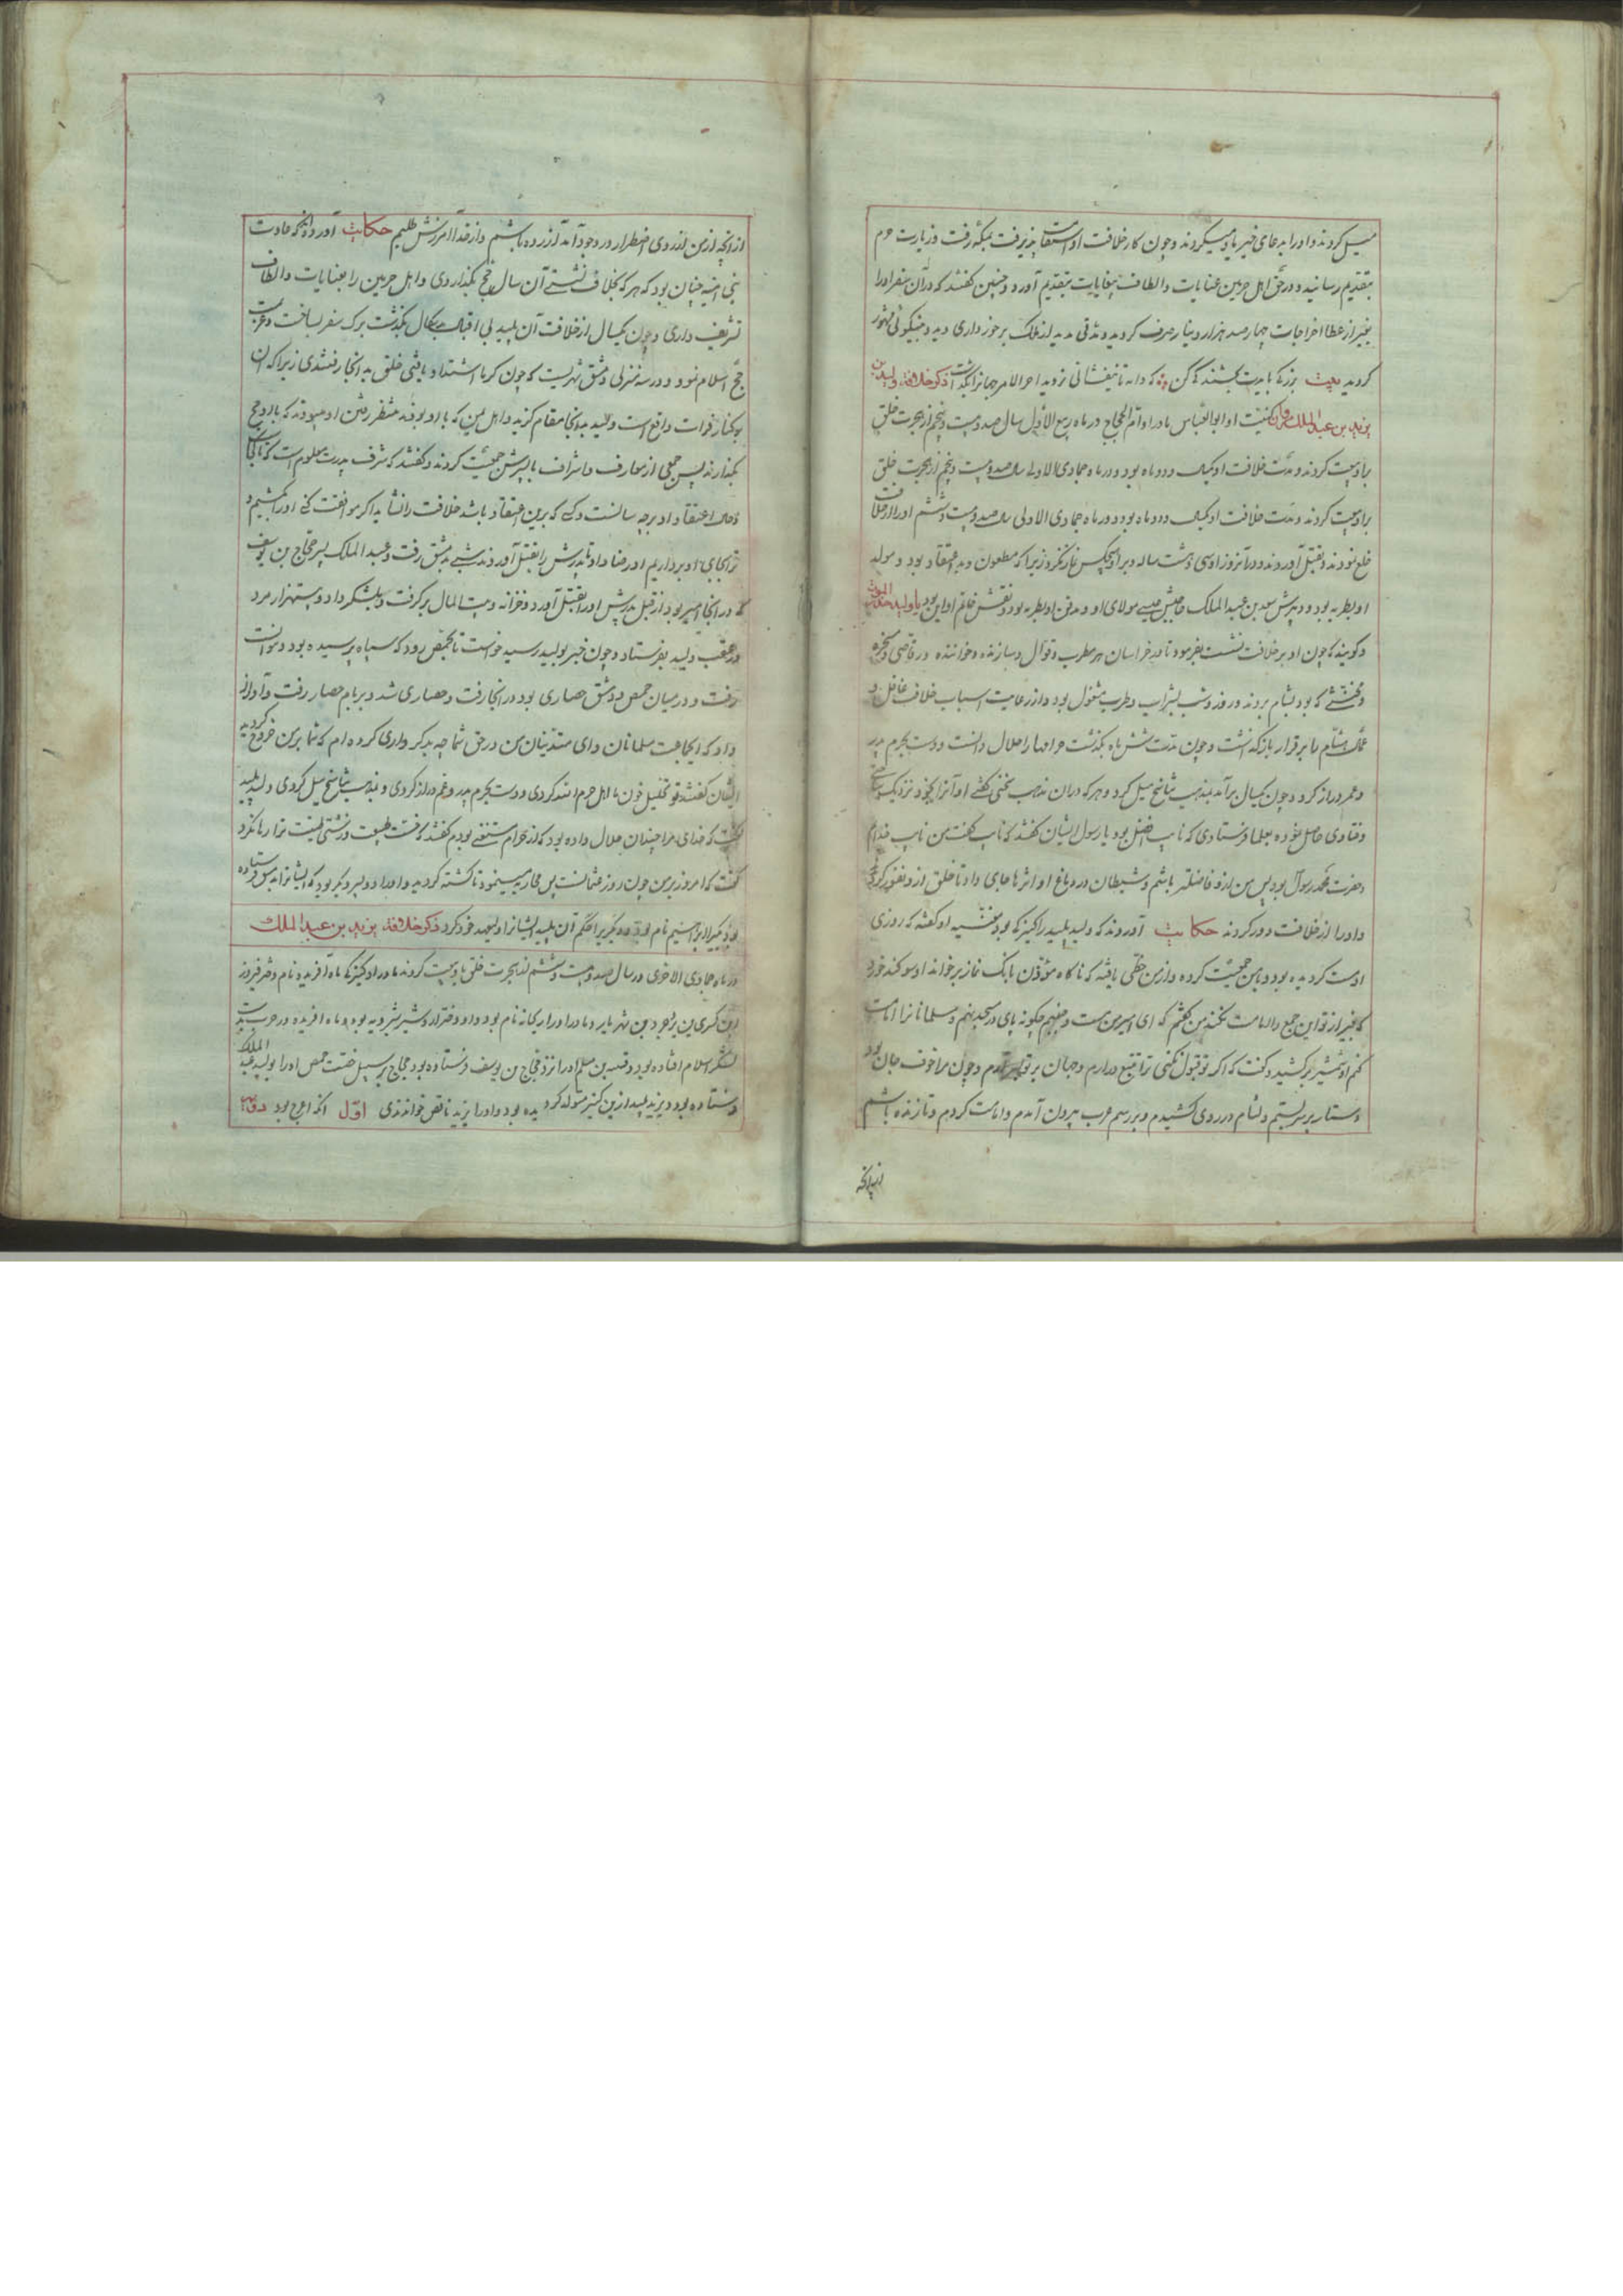 میل کردند و او را بدعای خیر یاد میکردند و چون کار خلافت او استقامت پذیرفت بمکه رفت و زیارت حرم
بتقدیم رسانید و در حق اهل حرمین عنایات و الطاف بیغایات بتقدیم آورد و چنین کفتند که در آن سفر او را
بغیر از عطا اخراجات چهارصد هزار دینار صرف کردید و مدتی مدید از ملک برخورداری دید و بنیکوئی مشهور
کردید بیت بزرکی بایدت بخشندکی کن که دانه تا نیفشانی نروید آخر الامر جهانرا بکذاشت ذکر خلافة ولید بن
یزید بن عبد الملک مروان کنیت او ابو العباس مادر او ام الحجاج در ماه ربیع الاول سال صد و بیست و پنجم از هجرت خلق
براو بیعت کردند و مدت خلافت او یکسال و دو ماه بود و در ماه جمادی الاولی سال صد و بیست و پنجم از هجرت خلق
براو بیعت کردند و مدت خلافت او یکسال و دو ماه بود و در ماه جمادی الاولی سال صد و بیست و ششم او را از خلافت
خلع نمودند و بقتل آوردند و در آنروز او سی و هشت ساله و بر او هیچکس نماز نکرد زیرا که مطعون و بد اعتقاد بود و مولد
او بطریه بود و دبیرش سعد بن عبد الملک حاجبش عیسی مولای او و مدفن او بطریه بود و نقش خاتم او این بود یا ولید خذ الموت
و کویند که چون او بر خلافت نشست بفرمود تا در خراسان هر مطرب و قوال و سازنده و خواننده و رقاصی و مسخره
و مخنثی که بود بشام بردند و روز و شب بشراب و طرب مشغول بود و از رعایت اسباب خلافت غافل و
عمال هشام را برقرار بازکذاشت و چون مدت شش ماه بکذشت حرامها را حلال دانست و دست بحرم پدر
و عمر دراز کرد و چون یکسال برآمد بمذهب تناسخ میل کرد و هر که در آن مذهب سخنی کفتی او آنرا بخود نزدیک ساختی
و فتاوی حاصل نموده بعلما فرستادی که نایب افضل بود یا رسول ایشان کفتند که نایب کفت من نایب خدایم
و حضرت محمد رسول بود پس من ازو فاضلتر باشم و شیطان در دماغ او اثرها جای داد تا خلق ازو نفور کردید
و او را از خلافت دور کردند حکایت آوردند که ولید پلید را کنیزکی بود مغنیه او کفته که روزی
او مست کردیده بود و با من جمعیت کرده و از من حظی یافته که ناکاه مؤذن بانک نماز برخواند او سوکند خورد
که بغیر از تو این جمع را امامت نکند من کفتم که ای امیر من مست و جنبم چکونه پای در مسجد نهم و مسلمانانرا امامت
کنم او شمشیر برکشید و کفت که اکر تو قبول نکنی ترا بتیغ درآرم و جهان بر تو بسر آرم و چون مرا خوف جان بود
دستار بر سر بستم و لثام در روی کشیدم و برسم عرب بیرون آمدم و امامت کردم و تا زنده باشم
ازآنچه
ازآنچه از من از روی اضطرار در وجود آمد آزرده باشم و از خدا آمرزش طلبم حکایت آورده اند که عادت
بنی امیه چنان بود که هر که بخلافت نشستی آن سال حج بکذاردی و اهل حرمین را بعنایات و الطاف
تشریف داری و چون یکسال از خلافت آن پلید بی اقبال بکذشت برک سفر بساخت و عزیمت
حج اسلام نمود و در سه منزلی دمشق شهریست که چون کرما اشتداد یافتی خلق بدانجا رفتندی زیرا که آن
برکنار فرات واقع است ولید بدانجا مقام کزید و اهل یمن که با او بودند منتظر رفتن او میبودند که با او حج
بکذارند پس جمعی از معارف و اشراف با پسرش جمعیت کردند و کفتند که شرف پدرت معلوم است که تا کجاست
فساد اعتقاد او برچه سانست و کسی که برین اعتقاد باشد خلافت را نشاید اکر موافقت کنی او را بکشیم و
ترا بجای او برداریم او رضا داد تا پدرش را بقتل آوردند شبی بدمشق رفت و عبد الملک پسر حجاج بن یوسف
که در آنجا امیر بود از قبل پدرش او را بقتل آورد و خزانه و بیت المال برکرفت و بلشکر داد و بیستهزار مرد
در عقب ولید بفرستاد و چون خبر بولید رسید خواست تا بحمص رود که سپاه رسیده بود و نتوانست
رفت و در میان حمص و دمشق حصاری بود در آنجا رفت و حصاری شد و بر بام حصار رفت و آواز
داد که ایجماعت مسلمانان و ای متدینان من در حق شما چه بدکرداری کرده ام که شما بر من خروج کردید
ایشان کفتند تو تحلیل خون اهل حرم کردی و دست بحرم پدر و عم دراز کردی و بمذهب تناسخ میل کردی ولید پلید
کفت که خدای مرا چندان حلال داده بود که از حرام مستغنی بودم کفتند که خبث طبیعت و زشتی طینت ترا رها نکرد
کفت که امروز بر من چون روز عثمانست پس محاربه مینمود تا کشته کردید و او را دو پسر دیکر بود که ایشانرا
بود یکیرا ابراهیم نام بود و دیکریرا حکم آن پلید ایشانرا ولیعهد خود کرد ذکر خلافة یزید بن عبد الملک
در ماه جمادی الاخری در سال صد و بیست و ششم از هجرت خلق باو بیعت کردند مادر او کنیزکی ماه آفریده نام دختر فیروز
بن کسری بن یزدجرد بن شهریار و مادر او را ریحانه نام بود و او دختر اردوشیر شیرویه بود و ماه آفریده در حرب بدست
لشکر اسلام افتاده بود و قتیبه بن مسلم او را نزد حجاج بن یوسف فرستاده بود حجاج بر سبیل خدمت او را بولید عبد الملک
فرستاده بود و یزید پلید از این کنیز متولد کردیده بود و او را یزید ناقص خواندندی اول آنکه اعرج بود